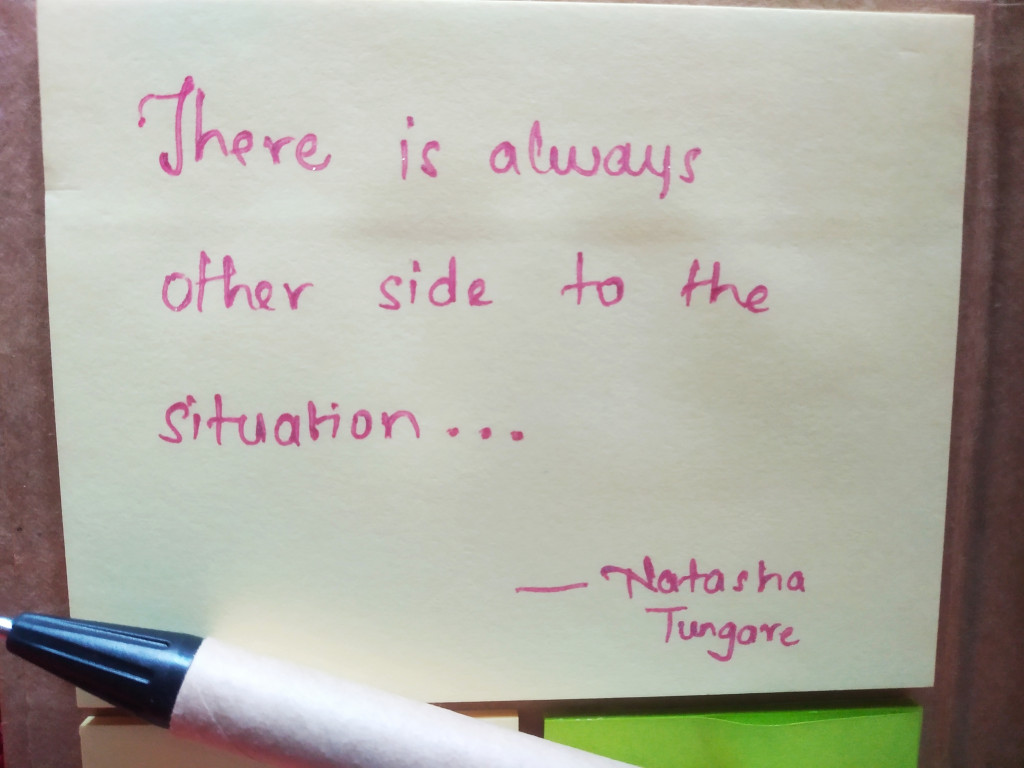 There is always
other side to the
situation...
— Natasha
Tungare